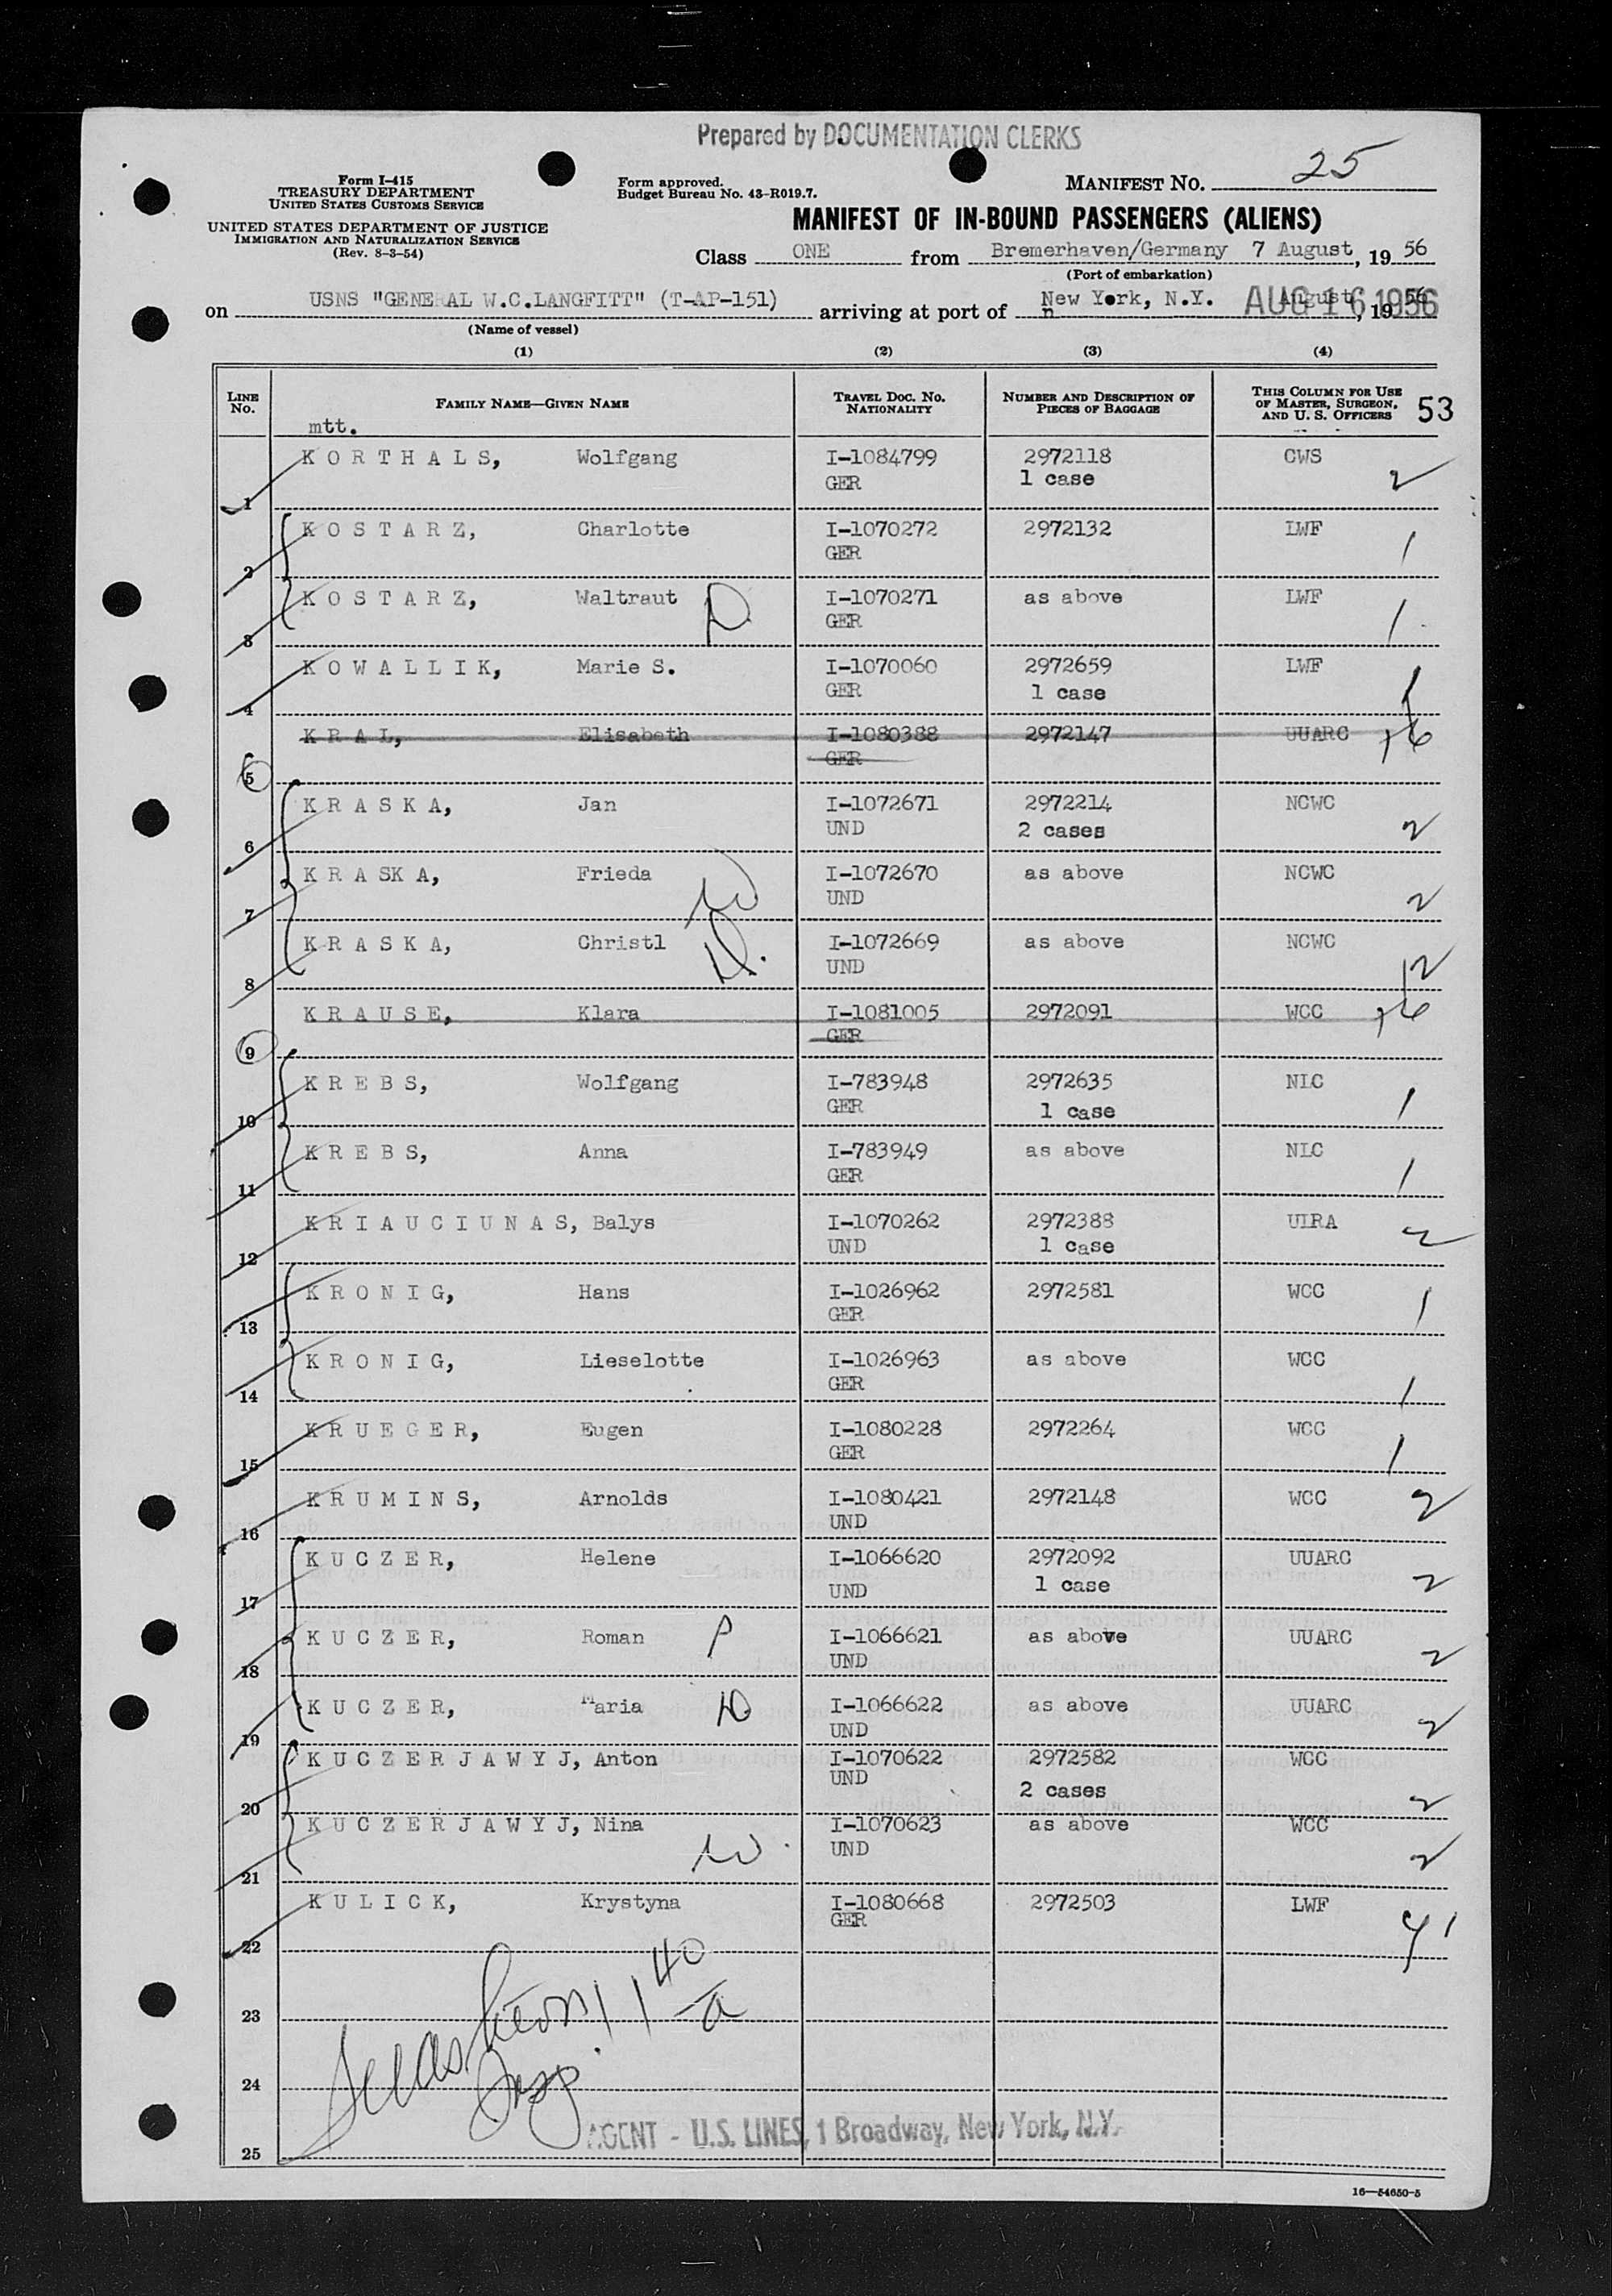 Prepared by DOCUMENTATION CLERKS
Form I-415
TREASURY DEPARTMENT
UNITED STATES CUSTOMS SERVICE
UNITED STATES DEPARTMENT OF JUSTICE
IMMIGRATION AND NATURALIZATION SERVICE
(Rev. 8-3-54)
Form approved.
Budget Bureau No. 43-R019.7.
MANIFEST NO. 25
MANIFEST OF IN-BOUND PASSENGERS (ALIENS)
Class ONE from Bremerhaven/Germany 7 August, 19 56
(Port of embarkation)
on USNS "GENERAL W.C.LANGFITT" (T-AP-151) arriving at port of New York, N.Y. AUG 16 1956
(Name of vessel)
(1) (2) (3) (4)
LINE NO. FAMILY NAME—GIVEN NAME TRAVEL DOC. NO. NATIONALITY NUMBER AND DESCRIPTION OF PIECES OF BAGGAGE THIS COLUMN FOR USE OF MASTER, SURGEON, AND U. S. OFFICERS 53
mtt.
K O R T H A L S, Wolfgang I-1084799 2972118 CWS
GER 1 case 2
1
K O S T A R Z, Charlotte I-1070272 2972132 LWF
GER 1
2
K O S T A R Z, Waltraut D I-1070271 as above LWF
GER 1
3
K O W A L L I K, Marie S. I-1070060 2972659 LWF
GER 1 case 1
4
K R A L, Elisabeth I-1080388 2972147 UUARC
GER
5
K R A S K A, Jan I-1072671 2972214 NCWC
UND 2 cases 2
6
K R A SK A, Frieda W I-1072670 as above NCWC
UND 2
7
K R A S K A, Christl D. I-1072669 as above NCWC
UND 2
8
K R A U S E, Klara I-1081005 2972091 WCC
GER
9
K R E B S, Wolfgang I-783948 2972635 NLC
GER 1 case 1
10
K R E B S, Anna I-783949 as above NLC
GER 1
11
K R I A U C I U N A S, Balys I-1070262 2972388 ULRA
UND 1 case 2
12
K R O N I G, Hans I-1026962 2972581 WCC
GER 1
13
K R O N I G, Lieselotte I-1026963 as above WCC
GER 1
14
K R U E G E R, Eugen I-1080228 2972264 WCC
GER 1
15
K R U M I N S, Arnolds I-1080421 2972148 WCC
UND 2
16
K U C Z E R, Helene I-1066620 2972092 UUARC
UND 1 case 2
17
K U C Z E R, Roman I-1066621 as above UUARC
UND 2
18
K U C Z E R, Maria D I-1066622 as above UUARC
UND 2
19
K U C Z E R J A W Y J, Anton I-1070622 2972582 WCC
UND 2 cases 2
20
K U C Z E R J A W Y J, Nina W I-1070623 as above WCC
UND 2
21
K U L I C K, Krystyna I-1080668 2972503 LWF
GER
22
23
24
AGENT - U.S. LINES, 1 Broadway, New York, N.Y.
25
16—54650-5